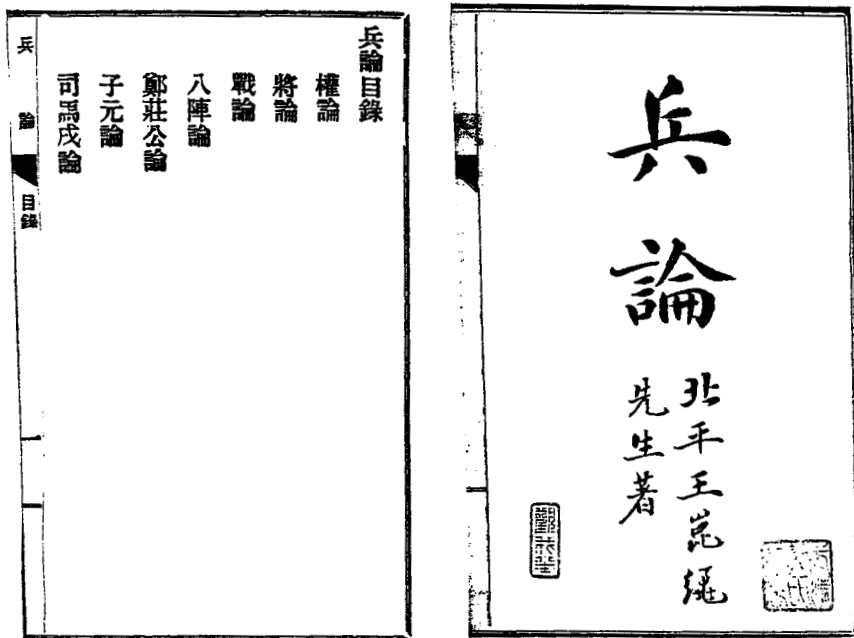 兵論
北平王崑繩
先生著
兵論目錄
權論
將論
戰論
八陣論
鄭莊公論
子元論
司馬戌論
兵論 目錄